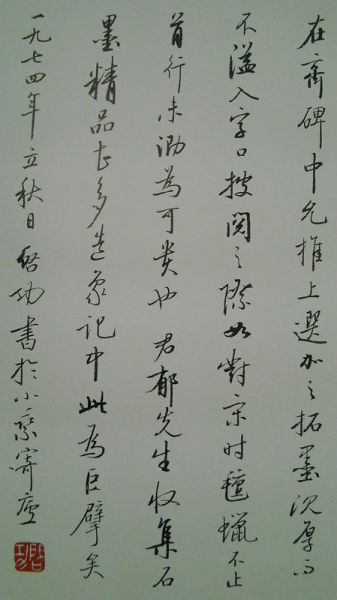 在齊碑中允推上選加之拓墨沈厚而
不溢入字口披閱之際如對宋时氊蠟不止
首行未泐為可貴也君郁先生收集石
墨精品甚多造象記中此為巨擘矣
一九七四年立秋日啓功書於小乘寄廬
啓功